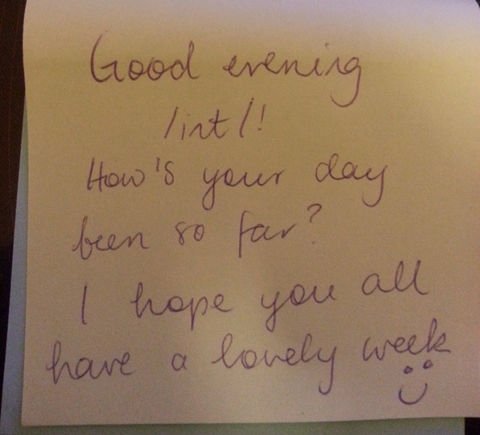 Good evening
/int/!
How's your day
been so far?
I hope you all
have a lovely week